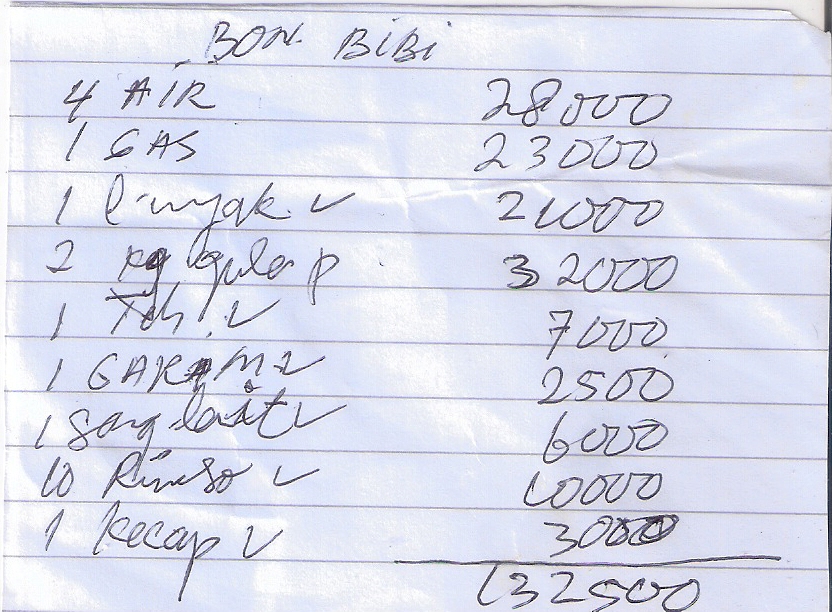 BON BIBI
4 AIR 28000
1 GAS 23000
1 ✓ 21000
2 kg gula p 32000
1 Teh ✓ 7000
1 GARAM ✓ 2500
1 ✓ 6000
10 Rinso ✓ 10000
1 kecap ✓ 3000
132500